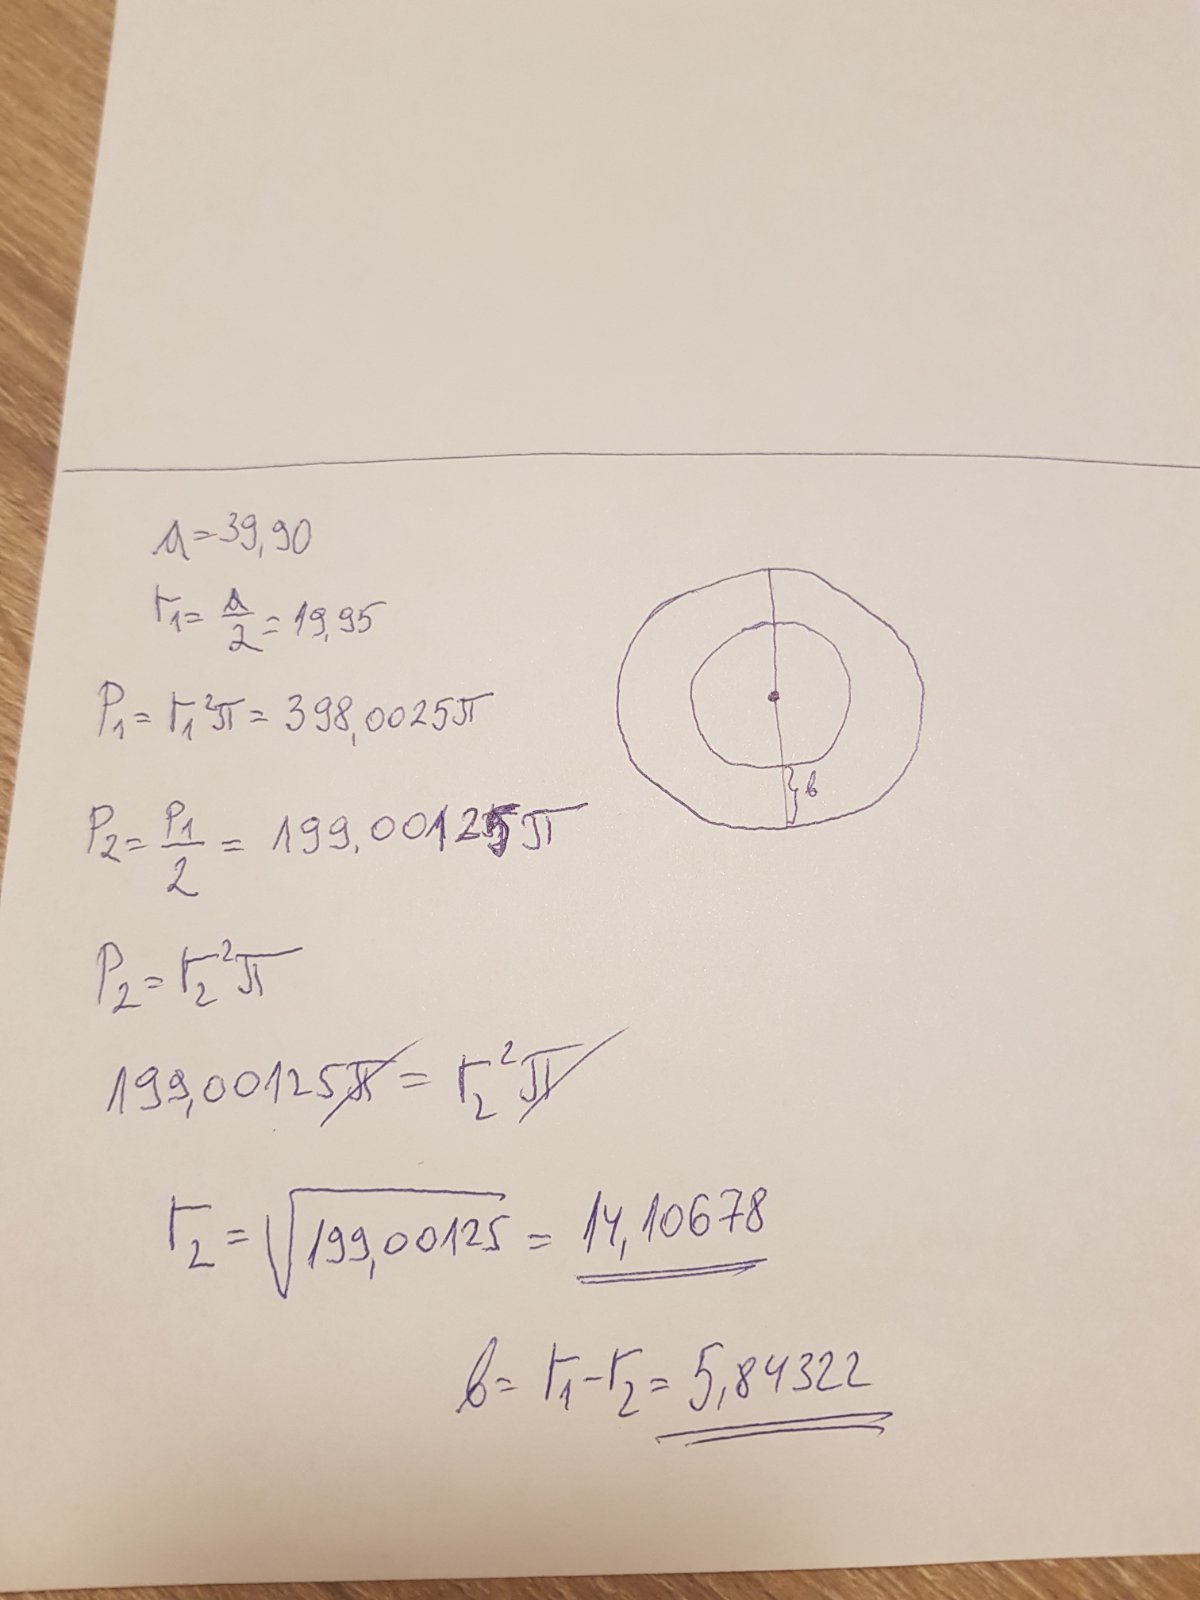 a = 39,90
r₁ = a/2 = 19,95
P₁ = r₁²π = 398,0025π
P₂ = P₁/2 = 199,00125π
P₂ = r₂²π
199,00125π = r₂²π
r₂ = √199,00125 = 14,10678
b = r₁ - r₂ = 5,84322
b